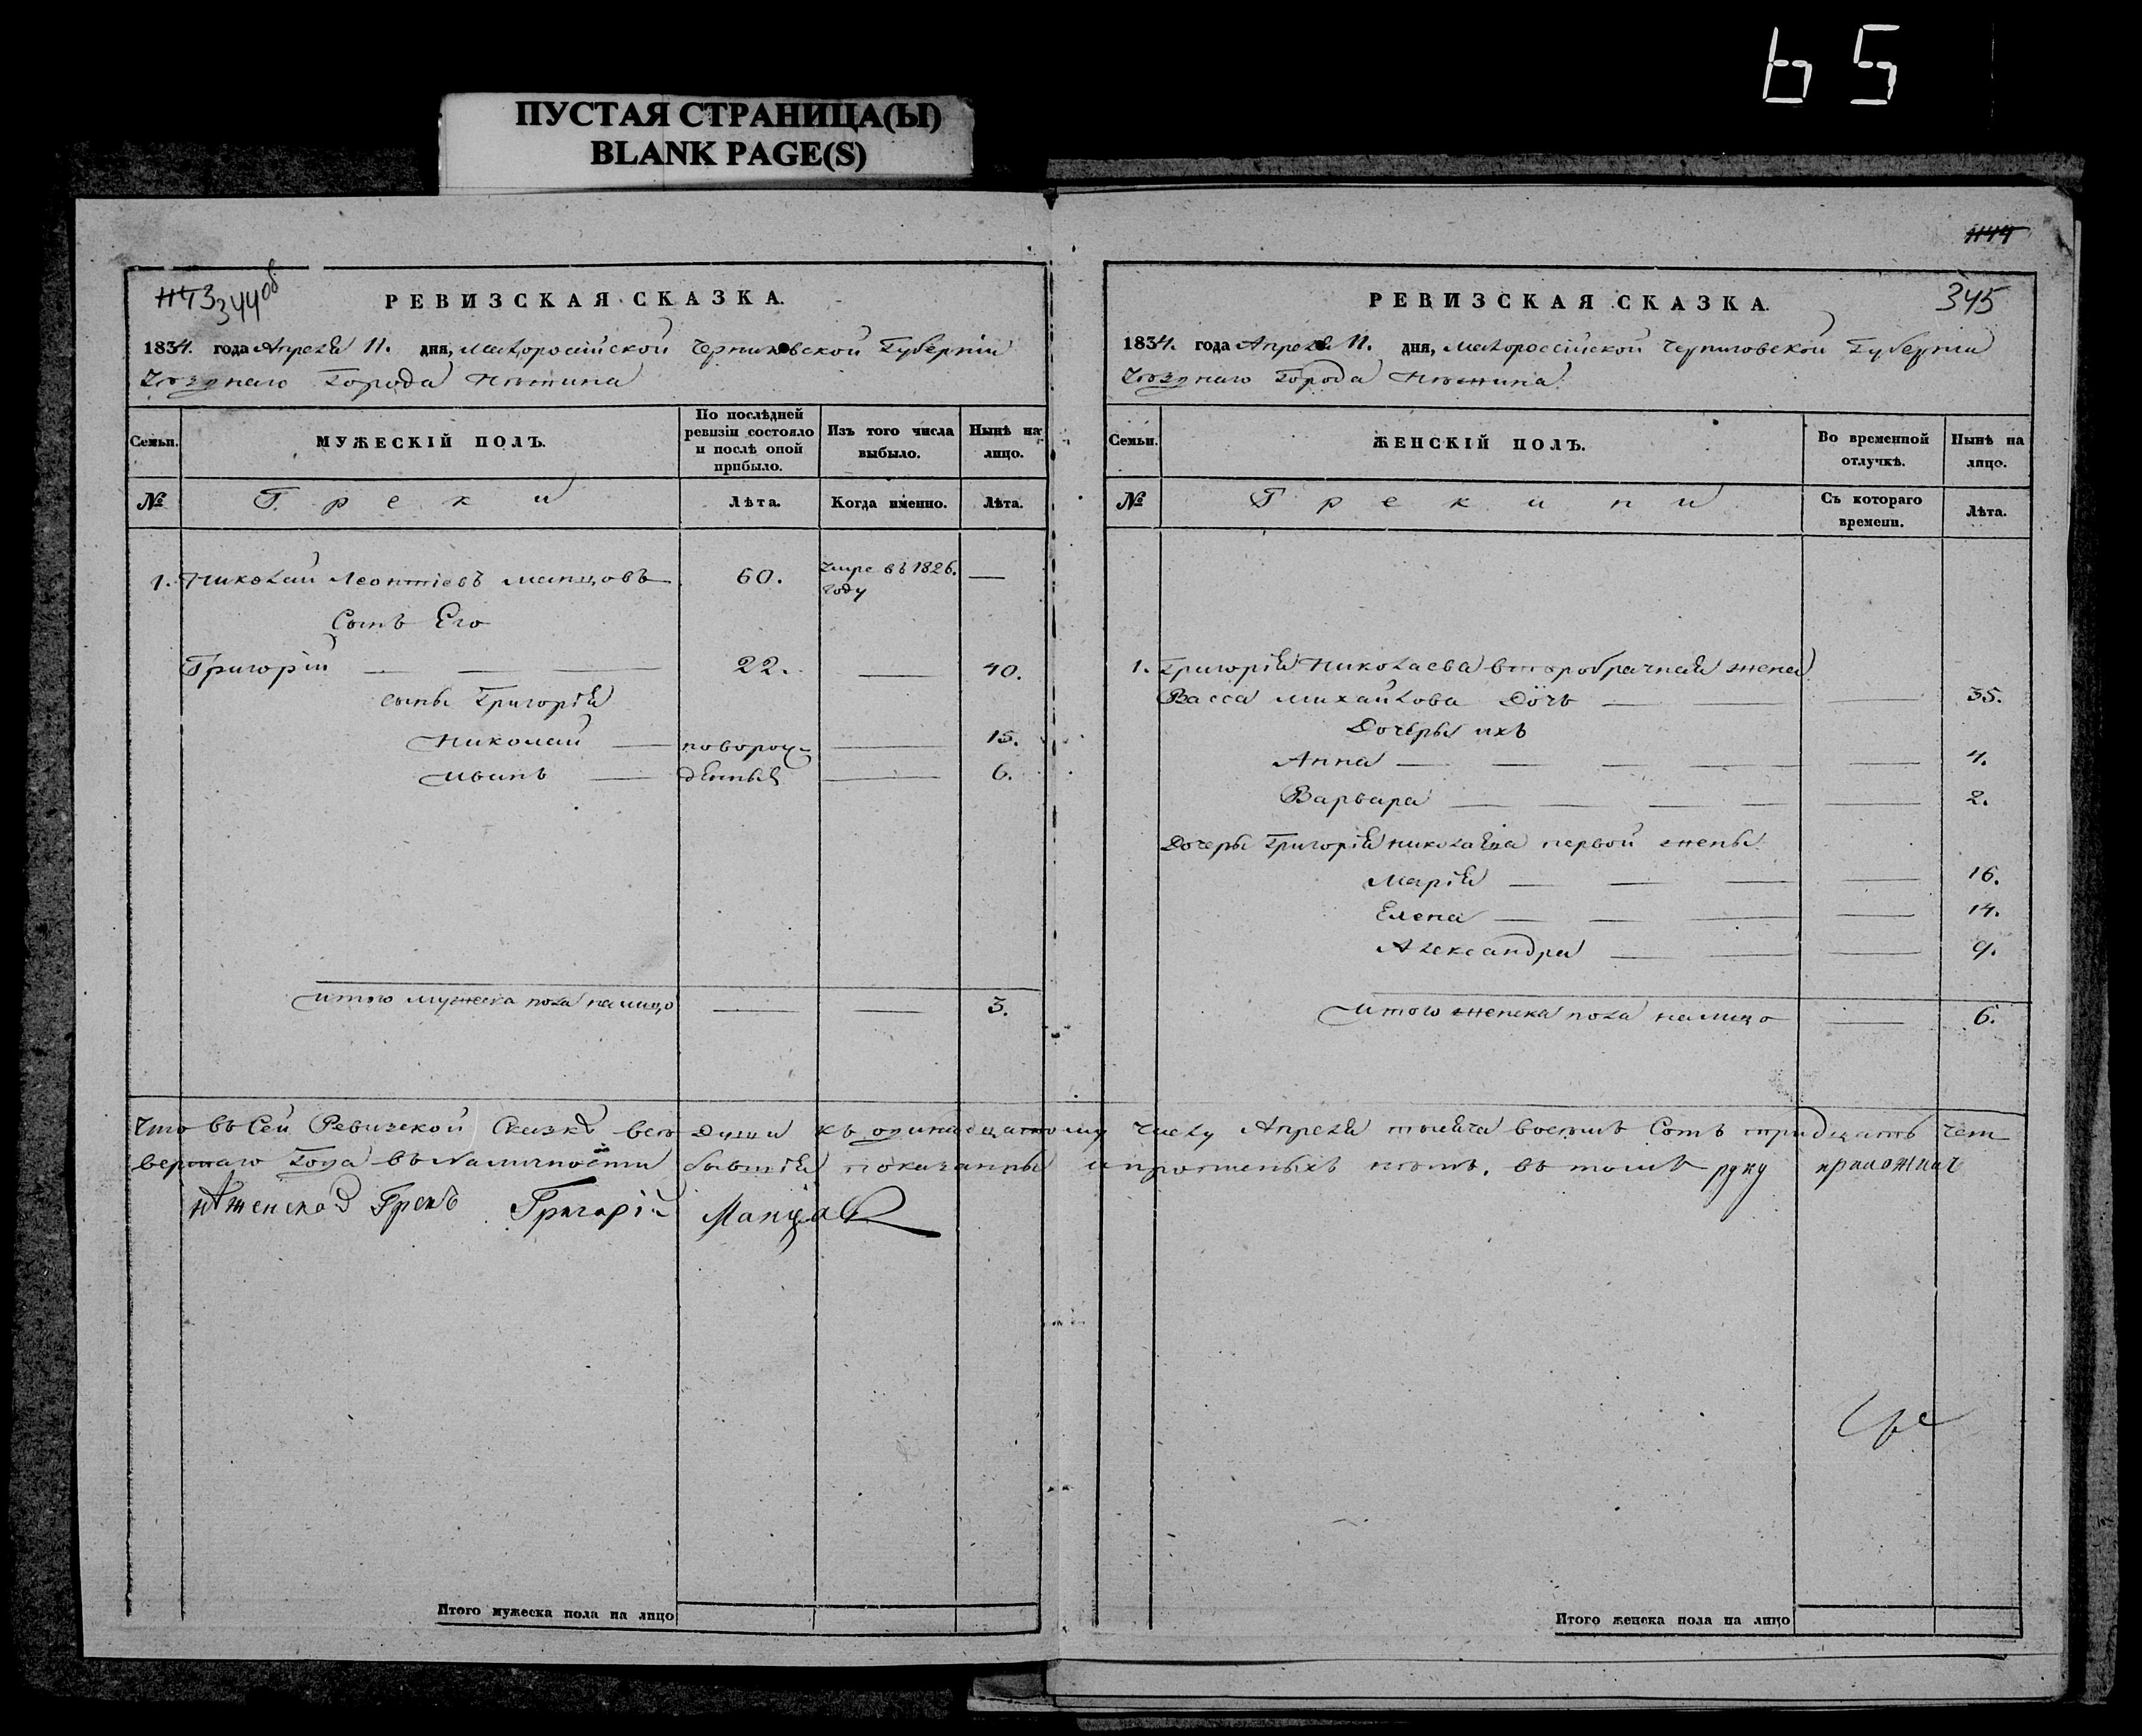 65
ПУСТАЯ СТРАНИЦА(Ы)
BLANK PAGE(S)
1143 344 об
РЕВИЗСКАЯ СКАЗКА.
1834. года Апреля 11. дня, Малоросийской Черниговской Губернии
Уезднаго Города Нежина
Семьи.
МУЖЕСКІЙ ПОЛЪ.
По послѣдней ревизіи состояло и послѣ оной прибыло.
Изъ того числа выбыло.
Нынѣ на лицо.
№
Греки
Лѣта.
Когда именно.
Лѣта.
1. Николай Леонтіевъ Манцовъ 60. умре въ 1826. году —
Сынъ Его
Григорій — — — 22. — 40.
сыны Григорія
Николай — новорож- — 15.
Иванъ — денныя — 6.
Итого мужеска пола налицо — — 3.
1144
345
РЕВИЗСКАЯ СКАЗКА.
1834. года Апреля 11. дня, Малороссійской Черниговской Губерніи
Уезднаго Города Нежина
Семьи.
ЖЕНСКІЙ ПОЛЪ.
Во временной отлучкѣ.
Нынѣ на лицо.
№
Грекини
Съ котораго времени.
Лѣта.
1. Григорія Николаева второбрачная жена
Васса Михайлова Дочь — — — 35.
Дочеры ихъ
Анна — — — — — 4.
Варвара — — — — 2.
Дочеры Григорія Николаева первой жены
Марія — — — — 16.
Елена — — — — 14.
Александра — — — 9.
Итого женска пола налицо — 6.
Что въ Сей Ревизской Сказки всю Души къ одинадцатому числу Апреля тысяча восемь Сотъ тридцать чет
вертаго Года въ наличности бывшія показанны и прописныхъ нетъ. въ томъ руку приложил
нѣженской Грекъ Григорій Манцов
Итого мужеска пола на лицо
Итого женска пола на лицо